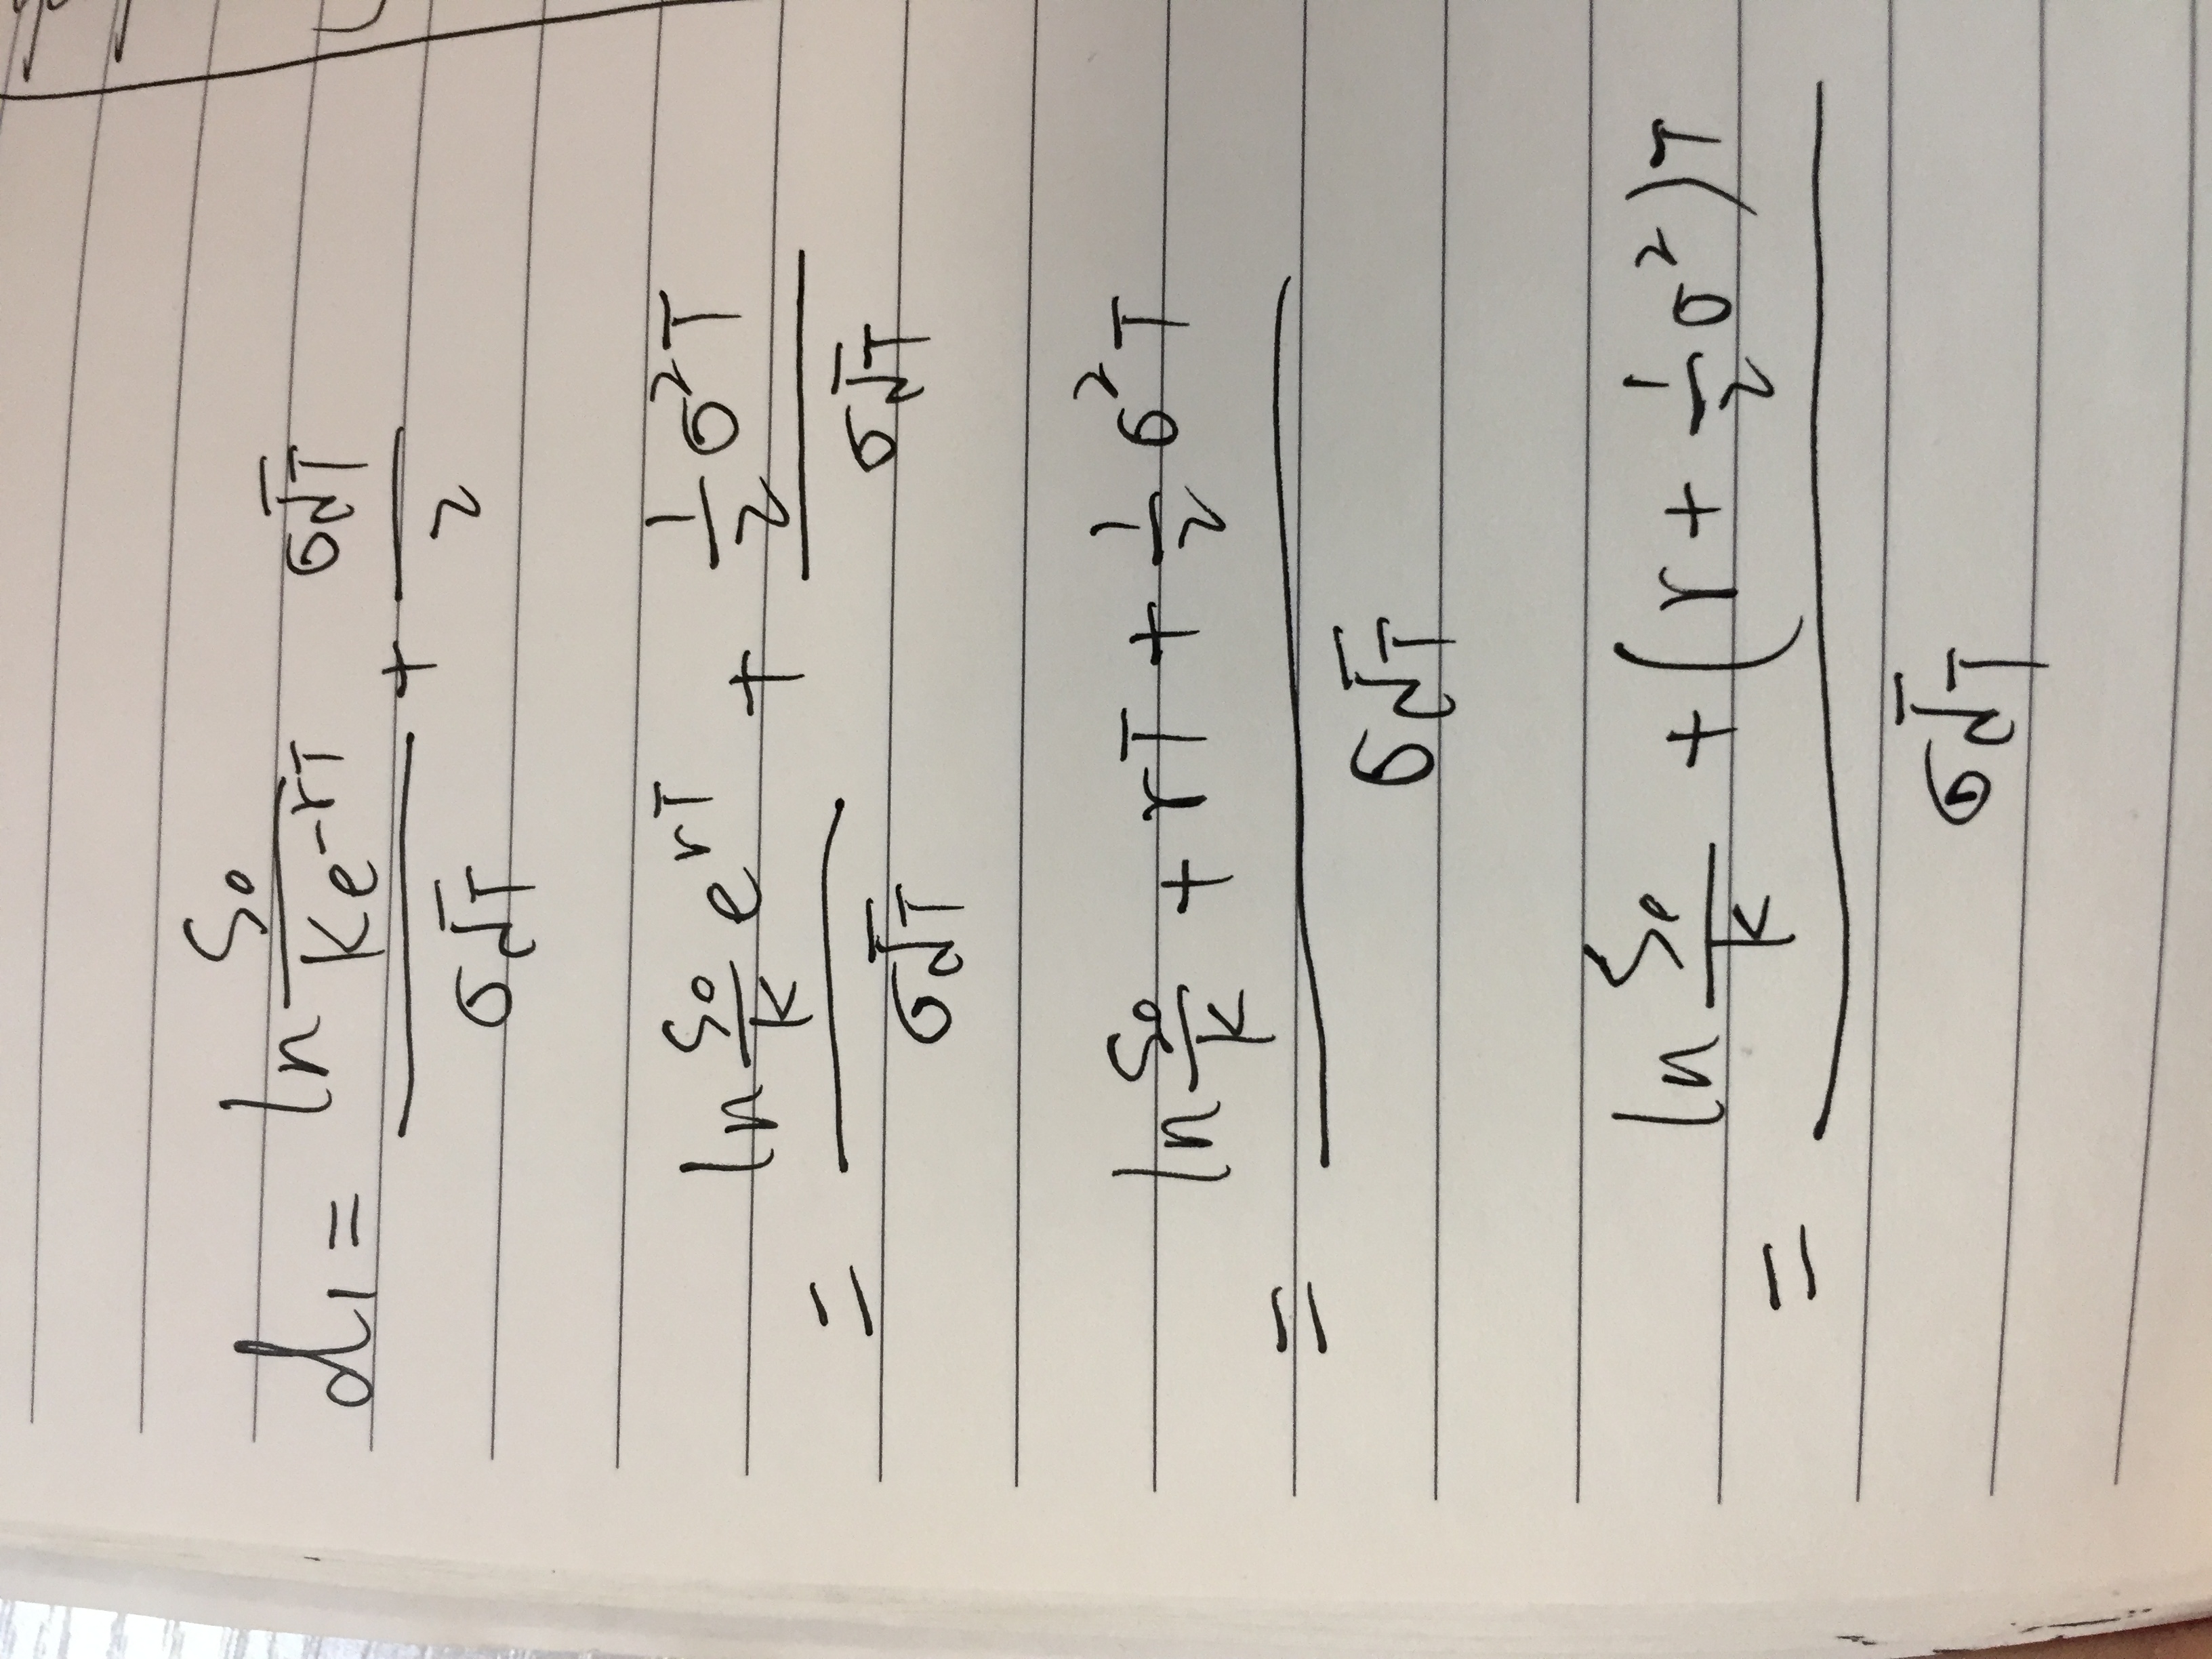 d₁ = (ln S₀/(Ke^(-rT)))/(σ√T) + (σ√T)/2
= (ln (S₀/K) e^(rT))/(σ√T) + (½σ²T)/(σ√T)
= (ln (S₀/K) + rT + ½σ²T)/(σ√T)
= (ln (S₀/K) + (r + ½σ²)T)/(σ√T)